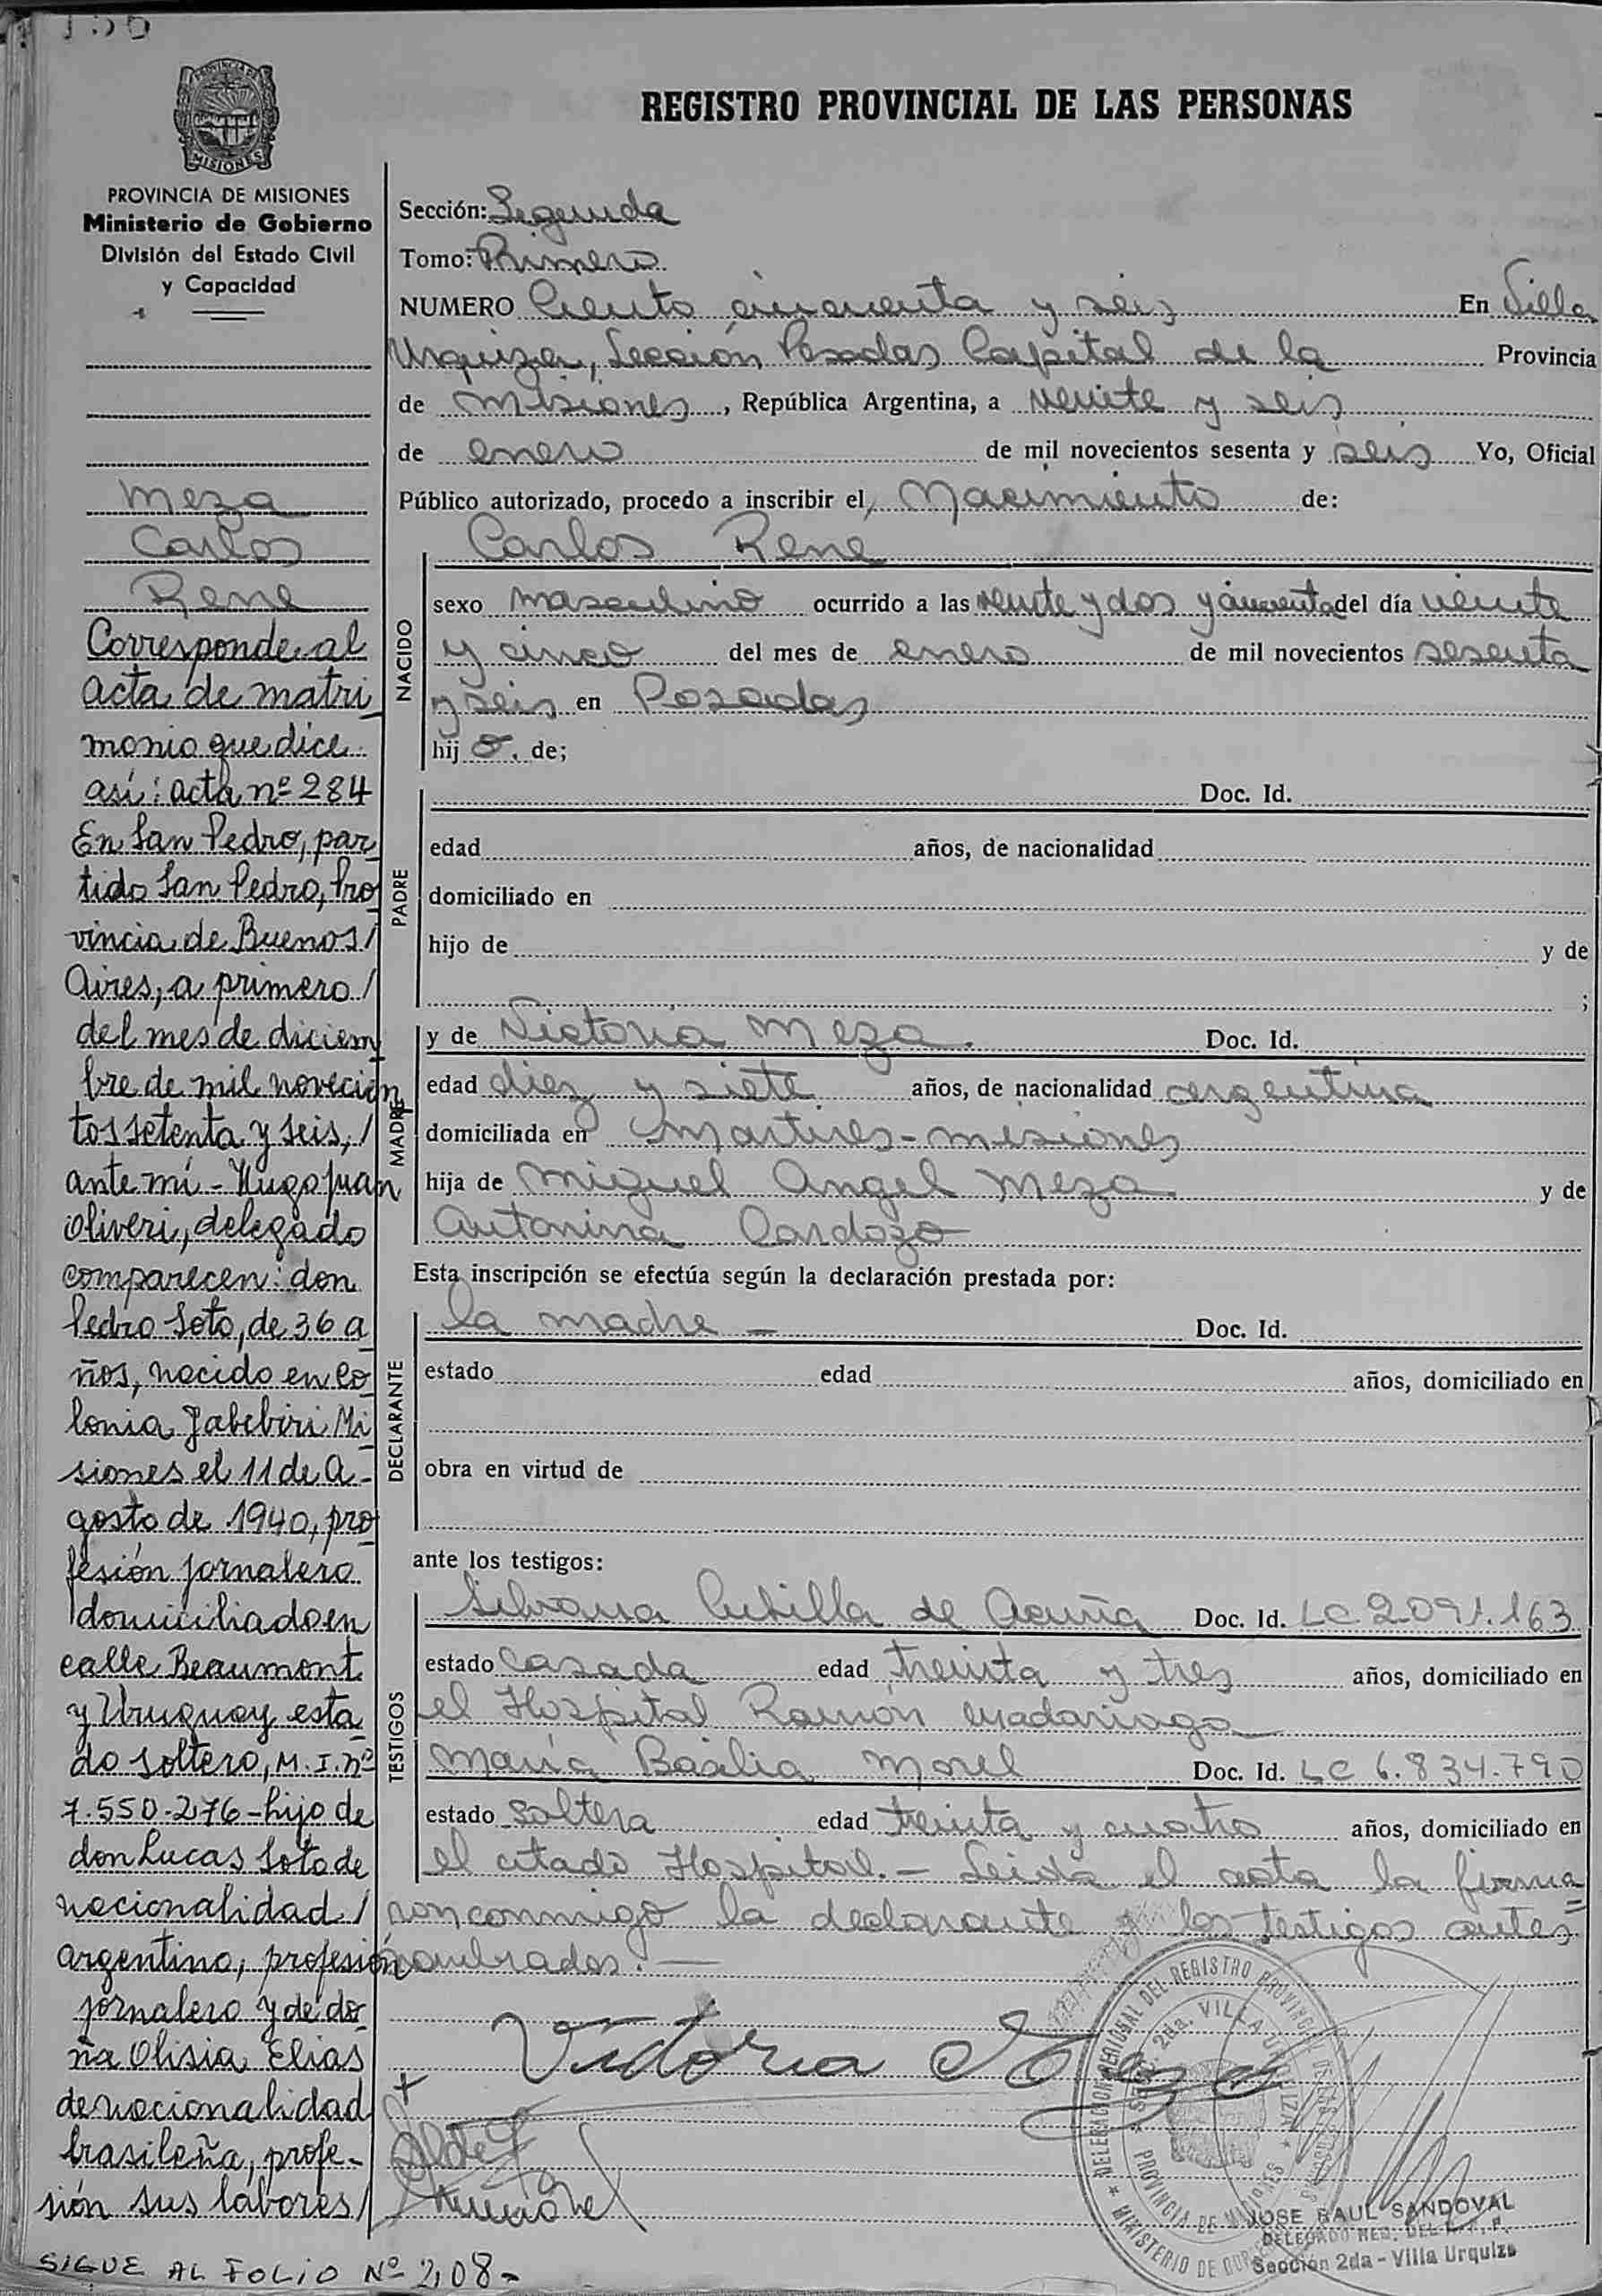 156
REGISTRO PROVINCIAL DE LAS PERSONAS
MISIONES
PROVINCIA DE MISIONES
Ministerio de Gobierno
División del Estado Civil
y Capacidad
Meza
Carlos
Rene
Corresponde al
acta de matri
monio que dice
así: acta nº 284
En San Pedro, par
tido San Pedro, Pro
vincia de Buenos /
Aires, a primero /
del mes de diciem
bre de mil novecien
tos setenta y seis, /
ante mí - Hugo Juan
Oliveri, delegado
comparecen: don
Pedro Soto, de 36 a
ños, nacido en Co
lonia Yabebiri Mi
siones el 11 de A-
gosto de 1940, pro
fesión jornalero
domiciliado en
calle Beaumont
y Uruguay esta
do soltero, M.I. nº
7.550.276 - hijo de
don Lucas Soto de
nacionalidad /
argentino, profesión
jornalero y de do-
ña Olisia Elias
de nacionalidad
brasileña, profe-
sión sus labores /
SIGUE AL FOLIO Nº 208-
Sección: Segunda
Tomo: Primero
NUMERO Ciento cincuenta y seis En Villa
Urquiza, Sección Posadas Capital de la Provincia
de Misiones, República Argentina, a veinte y seis
de enero de mil novecientos sesenta y seis Yo, Oficial
Público autorizado, procedo a inscribir el, Nacimiento de:
NACIDO
Carlos Rene
sexo masculino ocurrido a las veinte y dos y cuarenta del día veinte
y cinco del mes de enero de mil novecientos sesenta
y seis en Posadas
hij o. de;
PADRE
Doc. Id.
edad años, de nacionalidad
domiciliado en
hijo de y de
;
MADRE
y de Victoria Meza. Doc. Id.
edad diez y siete años, de nacionalidad argentina
domiciliada en Martires - misiones
hija de Miguel Angel Meza y de
Antonina Cardozo
Esta inscripción se efectúa según la declaración prestada por:
DECLARANTE
la madre - Doc. Id.
estado edad años, domiciliado en
obra en virtud de
ante los testigos:
TESTIGOS
Silvana Cubilla de Acuña Doc. Id. LC 2.091.163
estado Casada edad treinta y tres años, domiciliado en
el Hospital Ramón Madariaga
María Basilia Morel Doc. Id. LC 6.834.790
estado soltera edad treinta y cuatro años, domiciliado en
el citado Hospital. - Leida el acta la firma
ron conmigo la declarante y los testigos antes
nombrados. -
Victoria Meza
DELEGACION REGIONAL DEL REGISTRO PROVINCIAL DE LAS PERSONAS
SECC. 2da. VILLA URQUIZA
PROVINCIA DE MISIONES
MINISTERIO DE GOBIERNO
JOSE RAUL SANDOVAL
DELEGADO REG. DEL R. P. P.
Sección 2da - Villa Urquiza